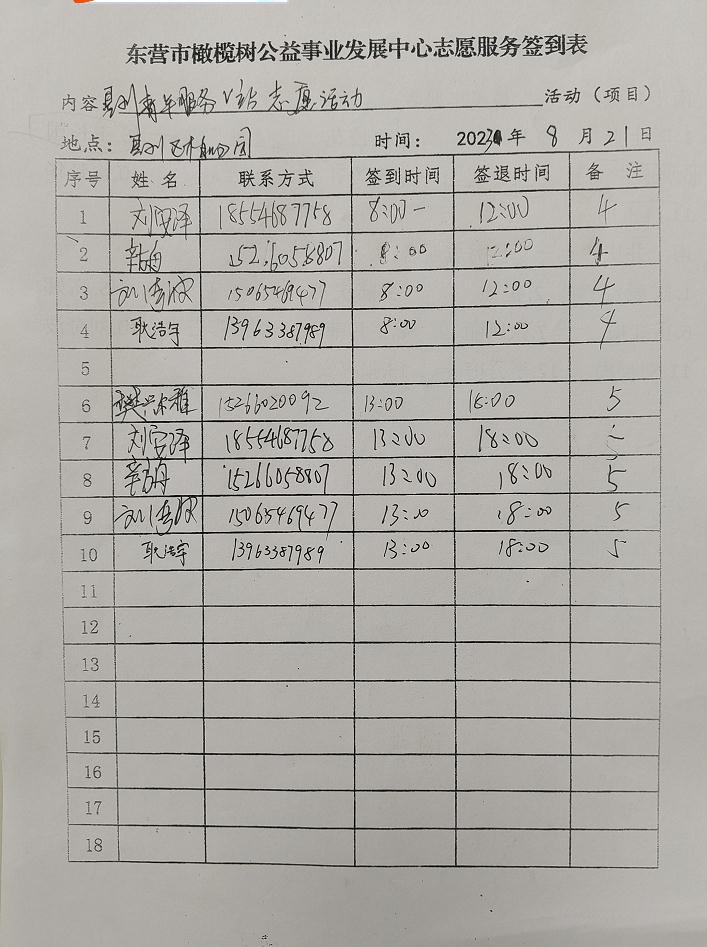 东营市橄榄树公益事业发展中心志愿服务签到表
内容 垦利青年服务V站志愿活动 活动（项目）
地点：垦利区 公园 时间：2023年8月21日
序号 姓名 联系方式 签到时间 签退时间 备注
1 刘安泽 18554687758 8:00- 12:00 4
2 辛舟 15266058807 8:00 12:00 4
3 15065469477 8:00 12:00 4
4 耿浩宇 13963387989 8:00 12:00 4
5
6 15266020092 13:00 18:00 5
7 刘安泽 18554687758 13:00 18:00
8 辛舟 15266058807 13:00 18:00 5
9 15065469477 13:00 18:00 5
10 耿浩宇 13963387989 13:00 18:00 5
11
12
13
14
15
16
17
18